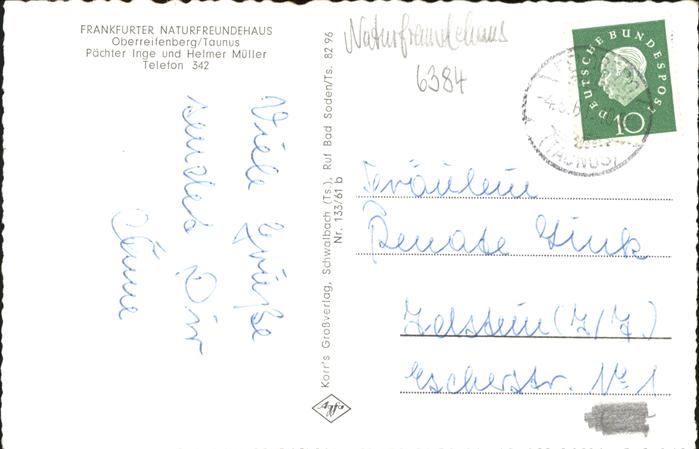 FRANKFURTER NATURFREUNDEHAUS
Oberreifenberg/Taunus
Pächter Inge und Helmer Müller
Telefon 342
Viele Grüße
sendet Dir
Änne
Korr's Großverlag, Schwalbach (Ts.), Ruf Bad Soden/Ts. 82 96
Nr. 133/61 b
Agfa
Naturfreundehaus
6384
DEUTSCHE BUNDESPOST
10
(TAUNUS)
Fräulein
Renate Zink
Idstein (T/T.)
Escherstr. No 1